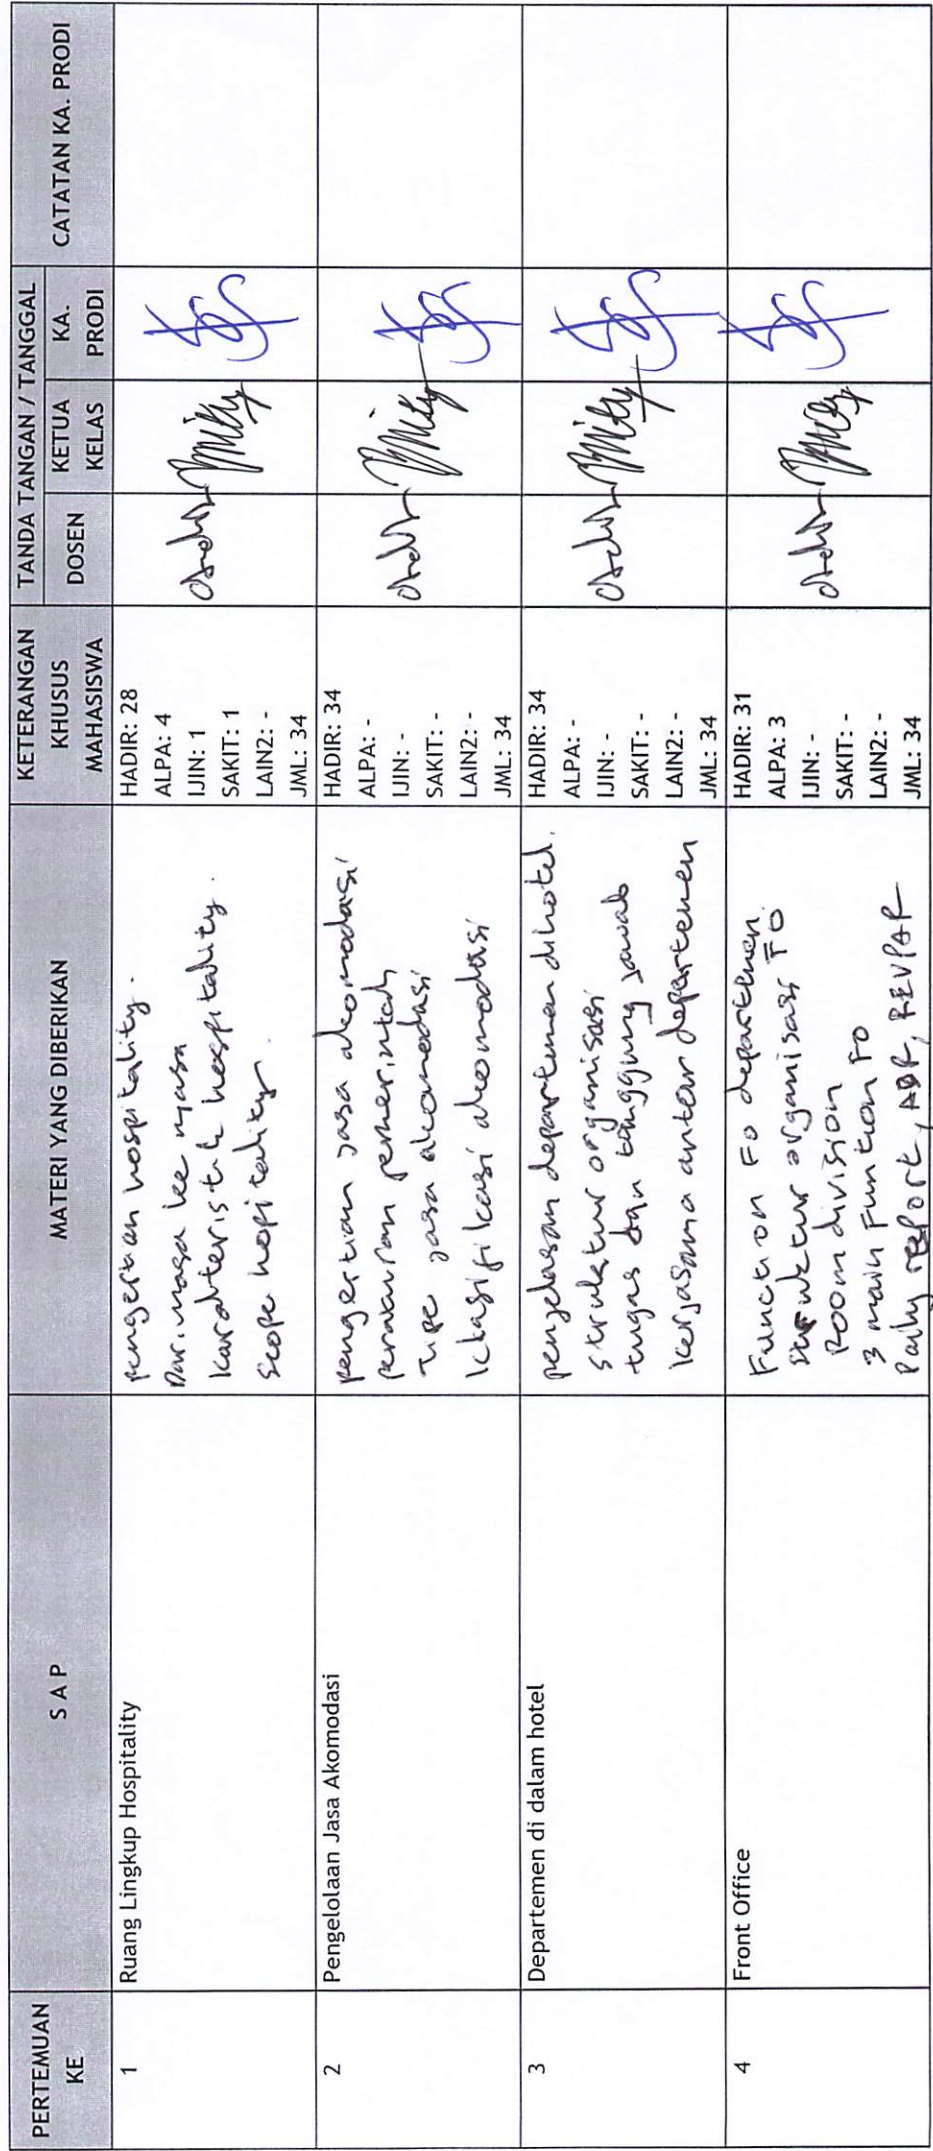 PERTEMUAN KE
S A P
MATERI YANG DIBERIKAN
KETERANGAN KHUSUS MAHASISWA
TANDA TANGAN / TANGGAL
DOSEN
KETUA KELAS
KA. PRODI
CATATAN KA. PRODI
1
Ruang Lingkup Hospitality
pengertian hospitality.
Dari masa ke masa
karakteristik hospitality.
scope hopitality.
HADIR: 28
ALPA: 4
IJIN: 1
SAKIT: 1
LAIN2: -
JML: 34
2
Pengelolaan Jasa Akomodasi
pengertian jasa akomodasi
peraturan pemerintah
Tipe jasa akomodasi
klasifikasi akomodasi
HADIR: 34
ALPA: -
IJIN: -
SAKIT: -
LAIN2: -
JML: 34
3
Departemen di dalam hotel
penjelasan departemen dihotel.
struktur organisasi
tugas dan tanggung jawab
kerjasama antar departemen
HADIR: 34
ALPA: -
IJIN: -
SAKIT: -
LAIN2: -
JML: 34
4
Front Office
Function FO departmen
struktur organisasi FO.
Room division
3 main Function FO
Daily report, ADR, REVPAR
HADIR: 31
ALPA: 3
IJIN: -
SAKIT: -
LAIN2: -
JML: 34